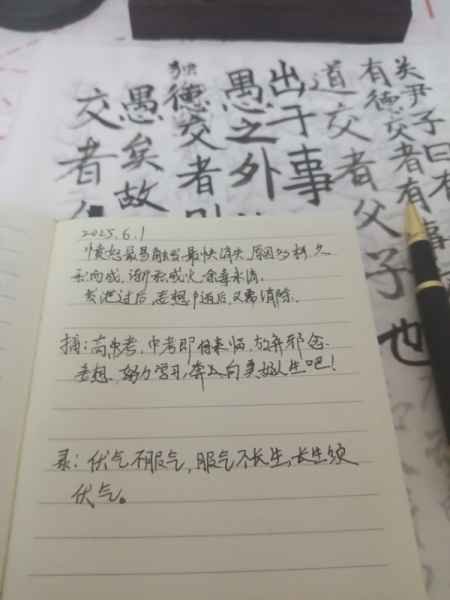 关尹子曰有
有德交者有事
道交者父子也
出于事
愚之外
德交者则
愚矣故
交者
2025.6.1
愤怒最易触发最快消失,原因为
而成,渐而成火,余毒未消.
发泄过后,妄想,过后,又需清除.
摘:高考,中考即将来临,放弃邪念
妄想,努力学习,奔向更好人生吧!
录:伏气不服气,服气不长生,长生须
伏气。